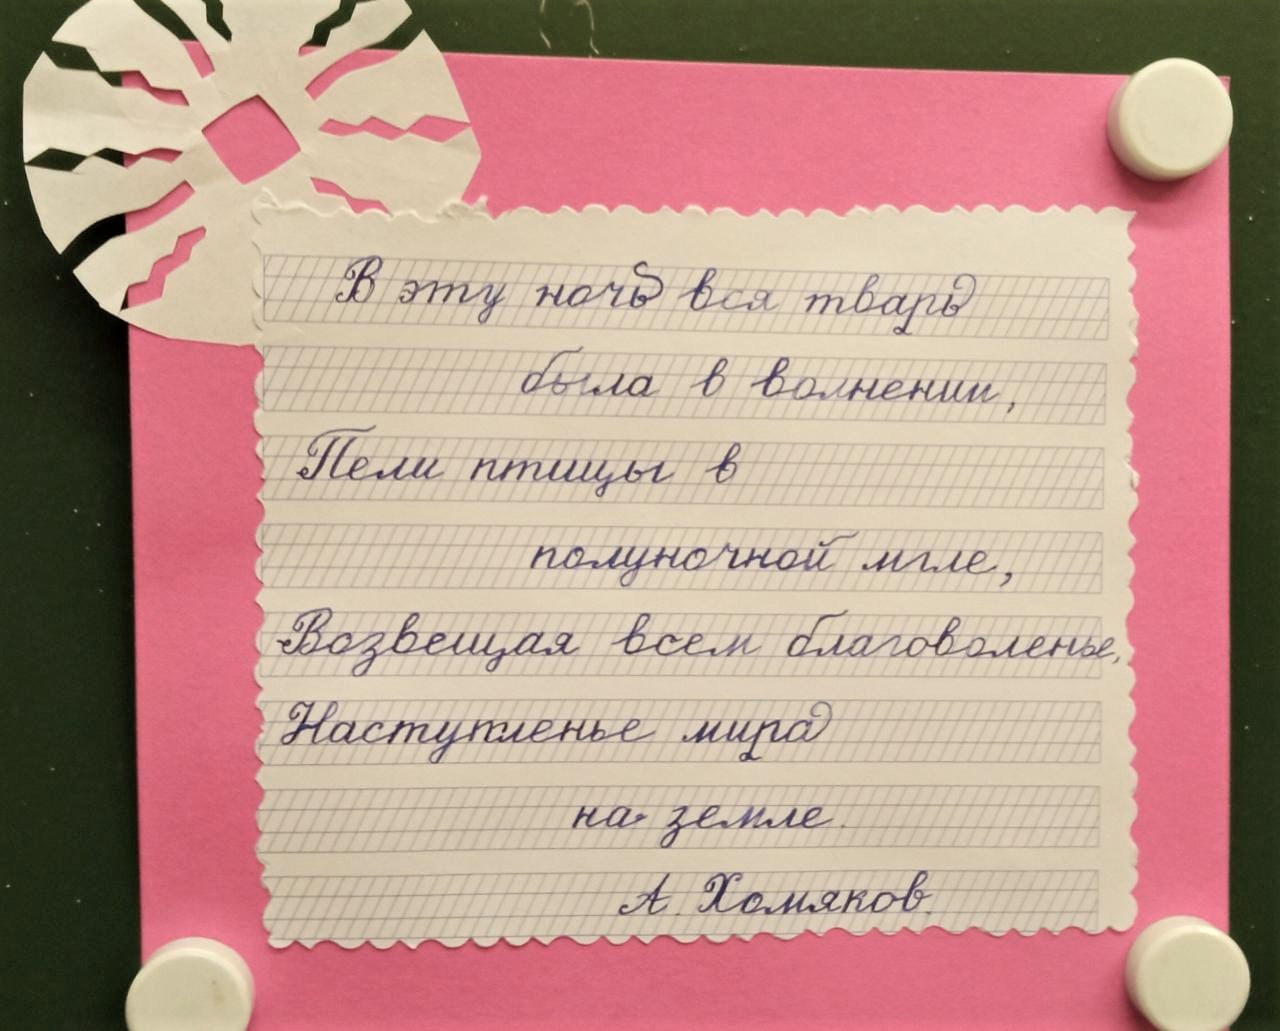 В эту ночь вся тварь
была в волнении,
Пели птицы в
полуночной мгле,
Возвещая всем благоволенье,
Наступленье мира
на земле.
А. Хомяков.